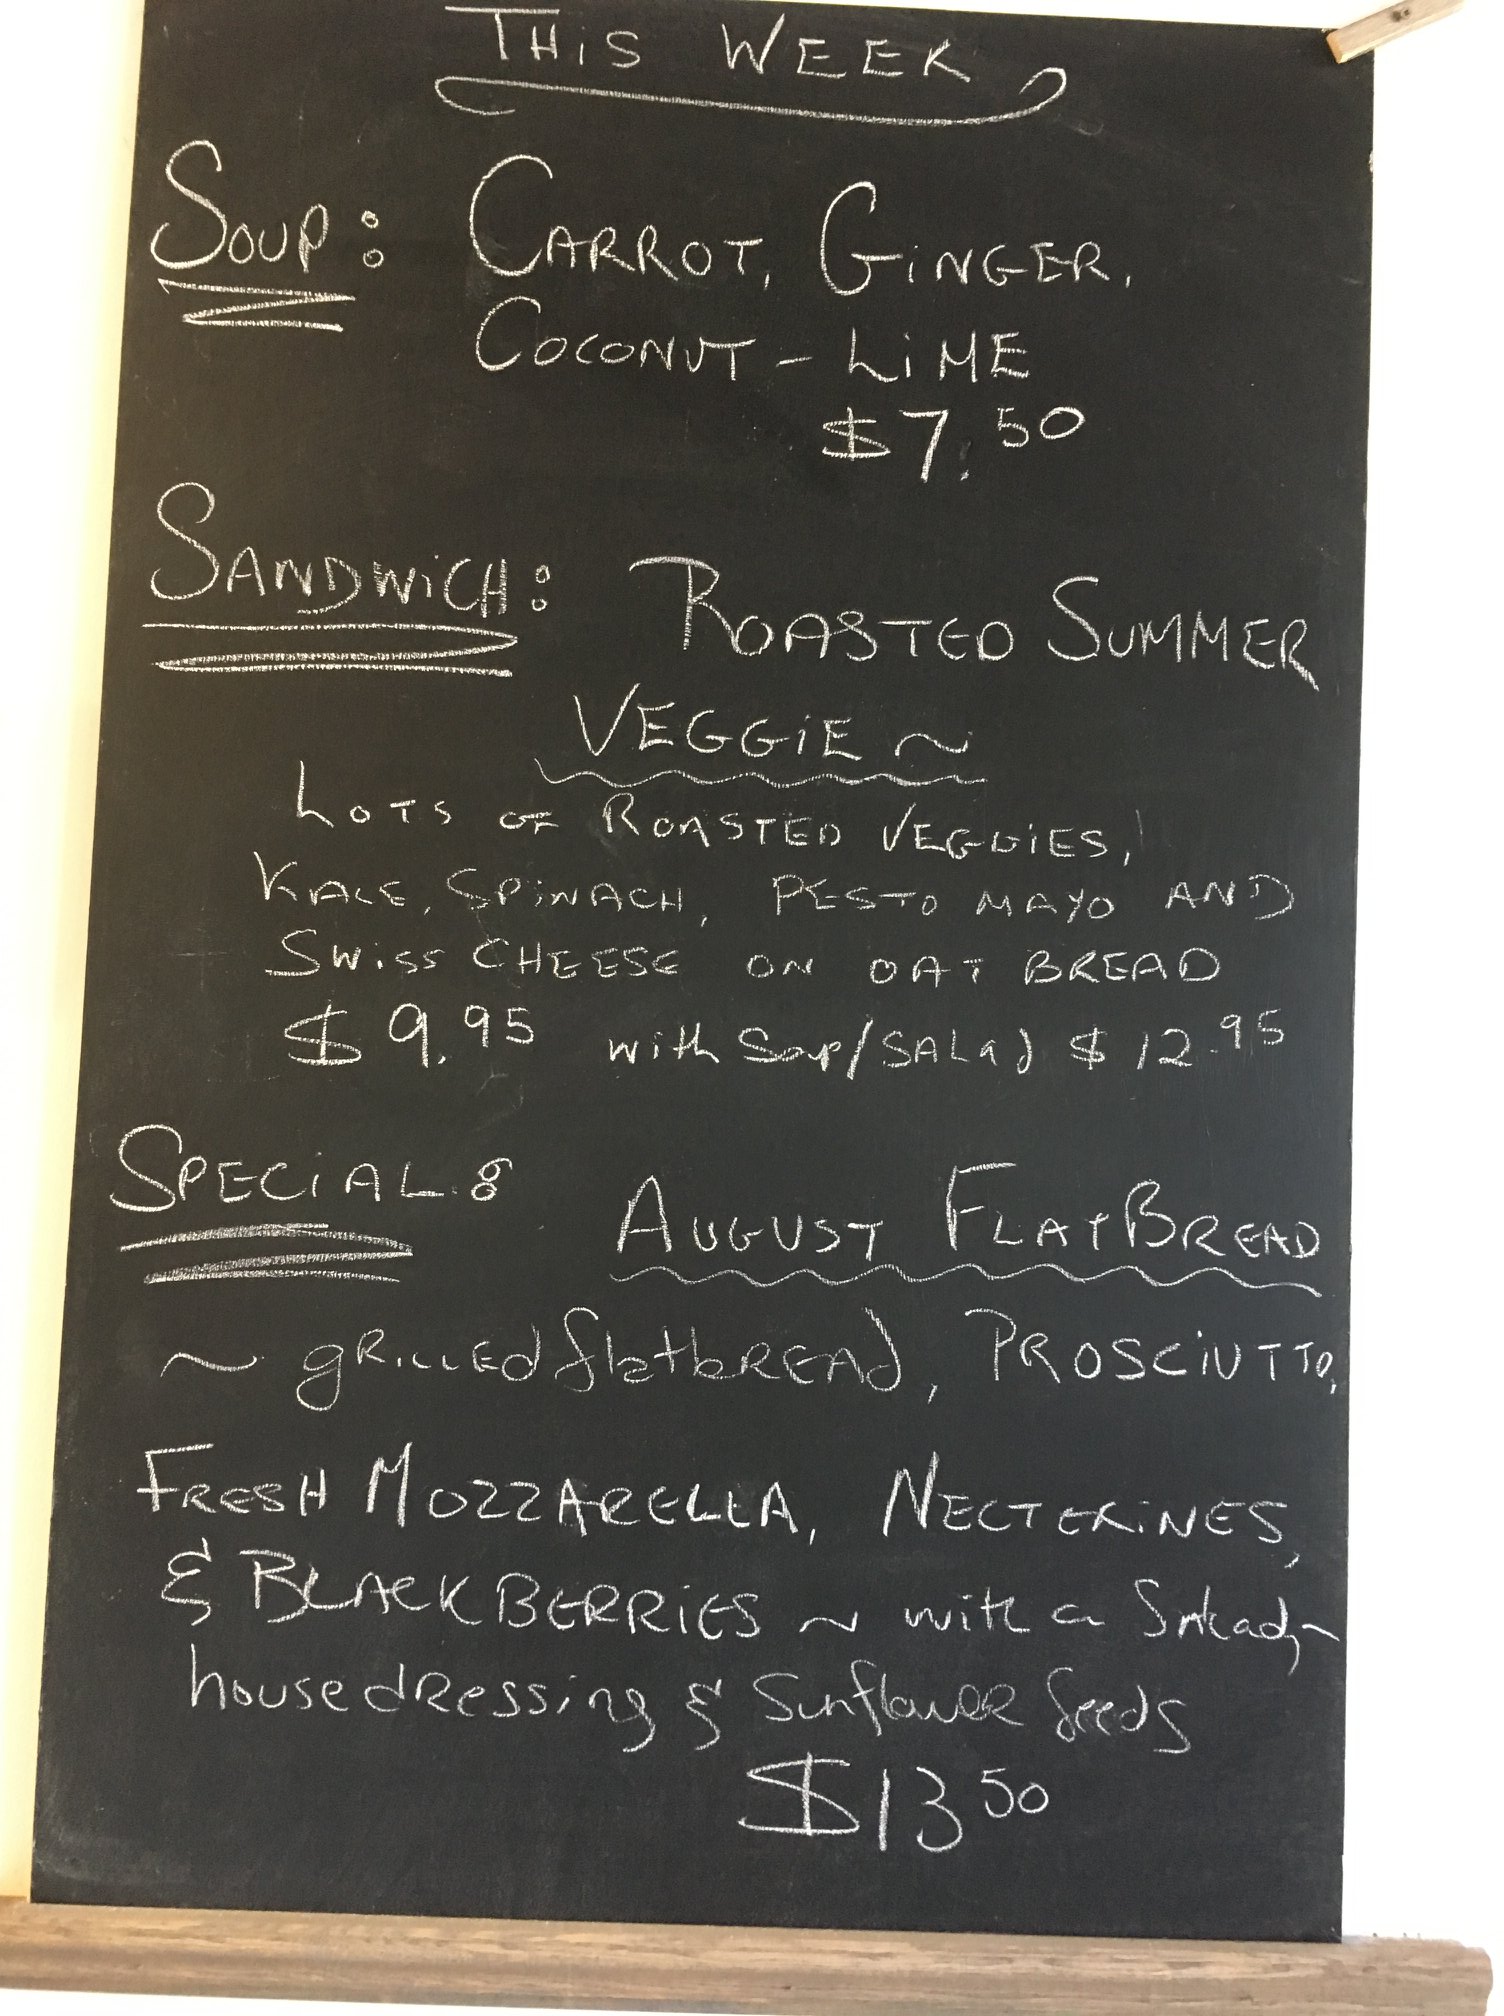 THiS WEEK
SOUP: CARROT, GiNGER,
COCONUT - LiME
$7.50
SANDWiCH: ROASTED SUMMER
VEGGiE ~
LOTS OF ROASTED VEGGiES,
KALE, SPiNACH, PESTO MAYO AND
SWiSS CHEESE ON OAT BREAD
$9.95 with Soup/SALad $12.95
SPECiAL: AUGUST FLATBREAD
~ gRiLLEd flatbREAd, PROSCiUTTO,
FRESH MOZZARELLA, NECTERiNES,
& BLACKBERRiES ~ with a Salad ~
house dRessing & Sunflower Seeds
$13 50